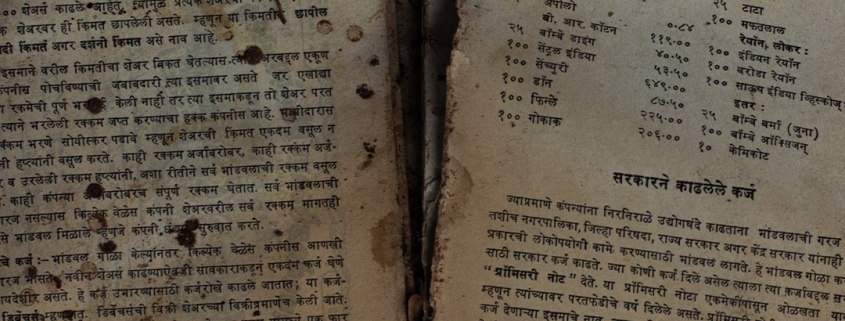 ०० शेअर्स काढले आहेत, त्यामुळे प्रत्येक
क शेअरवर ही किंमत छापलेली असते. म्हणून या किंमतीला छापील
किंमत अगर दर्शनी किंमत असे नाव आहे.
इसमाने वरील किंमतीचा शेअर विकत घेतल्यास एकूण
कंपनीस पोचविण्याची जबाबदारी त्या इसमावर असते जर एखाद्या
रकमेची पूर्ण केली नाही तर त्या इसमाकडून तो शेअर परत
त्याने भरलेली रक्कम जप्त करण्याचा हक्क कंपनीस आहे.
रक्कम भरणे सोयीस्कर पडावे म्हणून शेअरची किंमत एकदम वसूल न
हप्त्यांनी वसूल करते. काही रक्कम अर्जाबरोबर, काही रक्कम अर्ज-
र व उरलेली रक्कम हप्त्यांनी, अशा रीतीने सर्व भांडवलाची रक्कम वसूल
काही कंपन्या अर्जाबरोबरच संपूर्ण रक्कम घेतात. सर्व भांडवलाची
गरज नसल्यास कित्येक वेळेस कंपनी शेअरवरील सर्व रक्कम मागतही
भांडवल मिळाले म्हणजे कंपनी सुरुवात करते.
चे कर्ज :- भांडवल गोळा केल्यानंतर कित्येक वेळेस कंपनीस आणखी
गरज भासते. नवीन शेअर्स काढण्याऐवजी सावकाराकडून एकदम कर्ज घेणे
फायदेशीर असते. हे कर्ज उभारण्यासाठी कर्जरोखे काढले जातात; या कर्ज-
डिबेंचर्स म्हणतात. डिबेंचर्सची विक्री शेअरच्या विक्रीप्रमाणेच केली जाते.
अपोलो
बी. आर. कॉटन ०.८४
२५ बॉम्बे डाइंग ११९.००
१०० सेंट्रल इंडिया ४०.५०
१०० सेंच्युरी ५३.५०
१०० डॉन ६४९.००
१०० फिन्ले ८७.५०
१०० गोकाक २२५.००
२०६.००
२५ टाटा
१०० मफतलाल
रेयॉन, लोकर :
१०० इंडियन रेयॉन
१०० बरोडा रेयॉन
१०० साऊथ इंडिया व्हिस्कोज्
इतर :
२५ बॉम्बे बर्मा (जुना)
१०० बॉम्बे ऑक्सिजन्
१० केमिकोट
सरकारने काढलेले कर्ज
ज्याप्रमाणे कंपन्यांना निरनिराळे उद्योगधंदे काढताना भांडवलाची गरज
तशीच नगरपालिका, जिल्हा परिषदा, राज्य सरकार अगर केंद्र सरकार यांनाही
प्रकारची लोकोपयोगी कामे करण्यासाठी भांडवल लागते. हे भांडवल गोळा
साठी सरकार कर्ज काढते. ज्या कोणी कर्ज दिले असेल त्याला त्या कर्जाबद्दल
“ प्रॉमिसरी नोट ” देते. या प्रॉमिसरी नोटा एकमेकांपासून ओळखता
म्हणून त्यांच्यावर परतफेडीचे वर्ष दिलेले असते.
कर्ज देणाऱ्या इसमाचे नाव